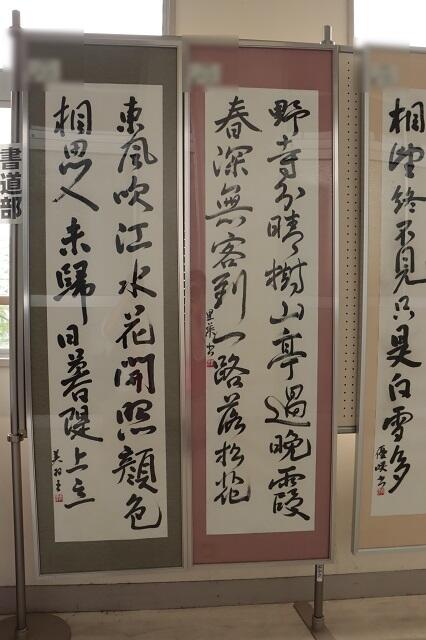 相望終不見只是白雲多
野寺分晴樹山亭過晩霞
春深無客到一路落松花
東風吹江水花開照顔色
相思人未歸日暮隄上立
書道部